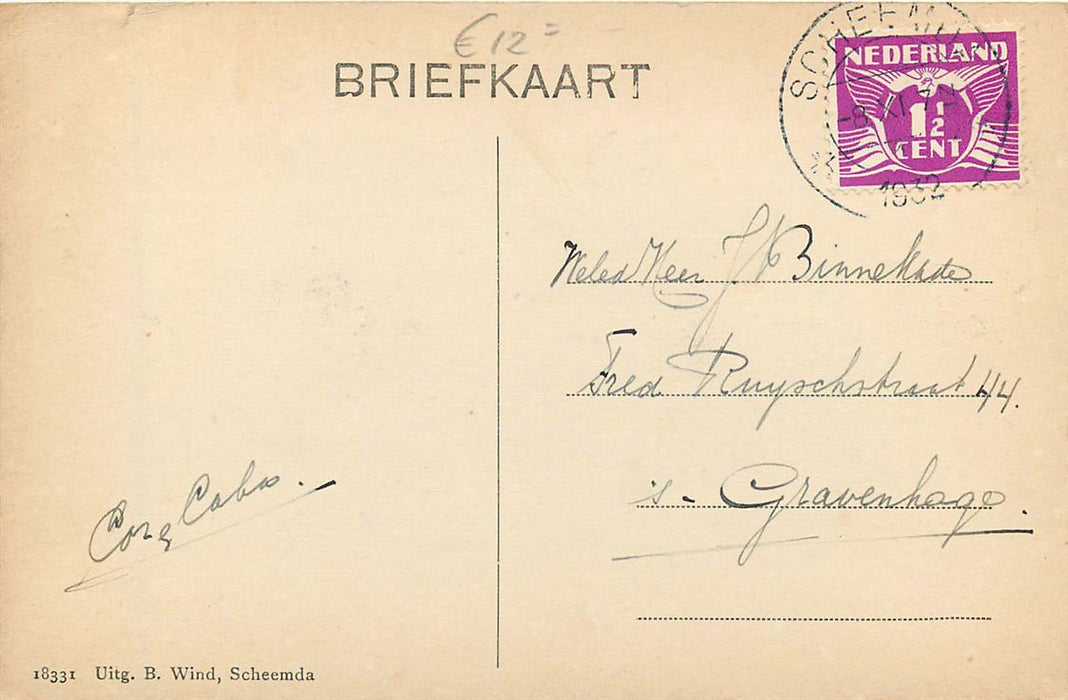 € 12=
BRIEFKAART
SCHEEMDA
-8.XI.
1932
NEDERLAND
1½
CENT
Weled Heer J. Binnekade
Fred Ruyschstraat 44.
's-Gravenhage.
Cor
18331 Uitg. B. Wind, Scheemda